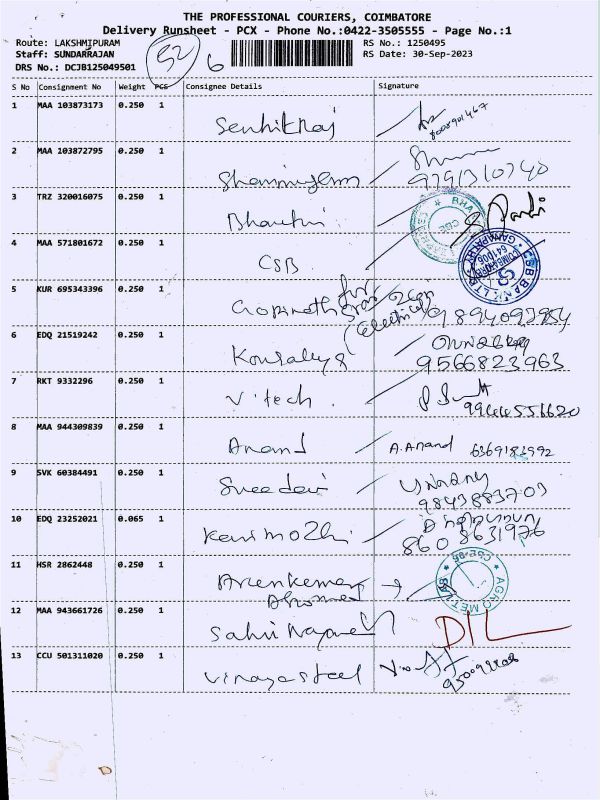 THE PROFESSIONAL COURIERS, COIMBATORE
Delivery Runsheet - PCX - Phone No.:0422-3505555 - Page No.:1
Route: LAKSHMIPURAM 52 RS No.: 1250495
Staff: SUNDARRAJAN 6 RS Date: 30-Sep-2023
DRS No.: DCJB125049501
S No Consignment No Weight PCS Consignee Details Signature
1 MAA 103873173 0.250 1 Senthilraj
2 MAA 103872795 0.250 1 Shanmugam 9791310740
3 TRZ 320016075 0.250 1 Bharathi
4 MAA 571801672 0.250 1 CSB CSB BANK LTD GANAPATHY COIMBATORE 641006
5 KUR 695343396 0.250 1 Gopinath for Electrical
6 EDQ 21519242 0.250 1 Kousalya 9566823963
7 RKT 9332296 0.250 1 V. tech. 9944556620
8 MAA 944309839 0.250 1 Anand A.Anand 6369183992
9 SVK 60384491 0.250 1 Sreedevi 9843883703
10 EDQ 23252021 0.065 1 Kanimozhi 8608631976
11 HSR 2862448 0.250 1 AGRO METAL CBE-06
12 MAA 943661726 0.250 1
13 CCU 501311020 0.250 1 Vinayasteel